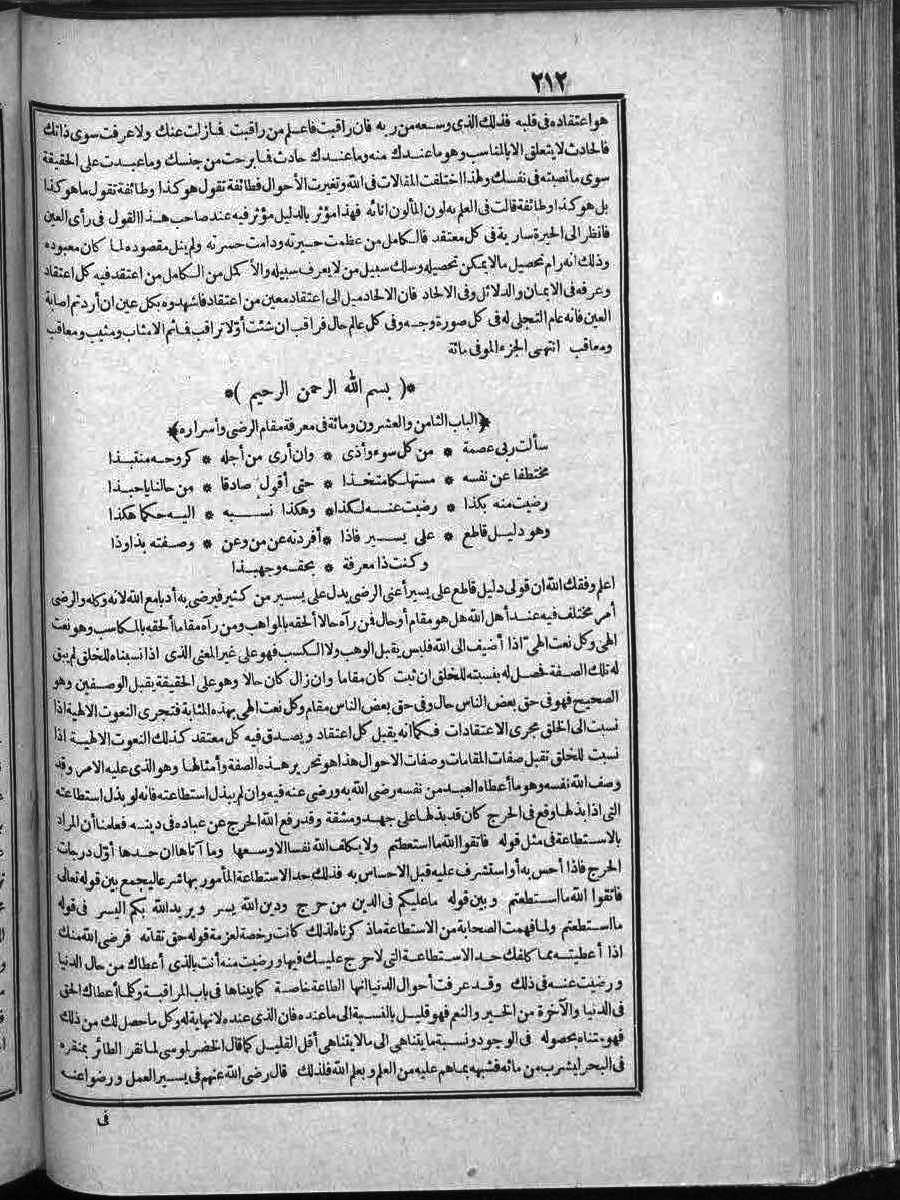 ٢١٢
هو اعتقاده فى قلبه فذلك الذى وسعه من ربه فان راقبت فاعلم من راقبت فمازلت عنك ولا عرفت سوى ذاتك
فالحادث لا يتعلق الا بالمناسب وهو ما عندك منه وما عندك حادث فما برحت من جنسك وما عبدت على الحقيقة
سوى ما نصبته فى نفسك ولهذا اختلفت المقالات فى الله وتغيرت الأحوال فطائفة تقول هو كذا وطائفة تقول ما هو كذا
بل هو كذا وطائفة قالت فى العلم به لون الماء لون انائه فهذا مؤثر بالدليل مؤثر فيه عند صاحب هذا القول فى رأى العين
فانظر الى الحيرة سارية فى كل معتقد فالكامل من عظمت حيرته ودامت حسرته ولم ينل مقصوده لما كان معبوده
وذلك انه رام تحصيل ما لا يمكن تحصيله وسلك سبيل من لا يعرف سبيله والأكمل من الكامل من اعتقد فيه كل اعتقاد
وعرفه فى الايمان والدلائل وفى الالحاد فان الالحاد ميل الى اعتقاد معين من اعتقاد فاشهدوه بكل عين ان أردتم اصابة
العين فانه عام التجلى له فى كل صورة وجه وفى كل عالم حال فراقب ان شئت أولا تراقب فما ثم الا مثاب ومثيب ومعاقب
ومعاقب انتهى الجزء الموفى مائة
*( بسم الله الرحمن الرحيم )*
*(الباب الثامن والعشرون ومائة فى معرفة مقام الرضى وأسراره)*
سألت ربى عصمة * من كل سوء وأذى * وان أرى من أجله * كروحه منتبذا
مختطفا عن نفسه * مستهلكا متخذا * حتى أقول صادقا * من حالنا يا حبذا
رضيت منه بكذا * رضيت عنه لكذا * وهكذا نسبه * اليه حكما هكذا
وهو دليل قاطع * على يسير فاذا * أفردته عن من وعن * وصفته بذا وذا
وكنت ذا معرفة * بحقه وجهبذا
اعلم وفقك الله ان قولى دليل قاطع على يسير أعنى الرضى يدل على يسير من كثير فيرضى به أدبا مع الله لانه وكله والرضى
أمر مختلف فيه عند أهل الله هل هو مقام أو حال فمن رآه حالا ألحقه بالمواهب ومن رآه مقاما ألحقه بالمكاسب وهو نعت
الهى وكل نعت الهى اذا أضيف الى الله فليس يقبل الوهب ولا الكسب فهو على غير المعنى الذى اذا نسبناه للخلق لم يبق
له تلك الصفة فحصل له بنسبته للخلق ان ثبت كان مقاما وان زال كان حالا وهو على الحقيقة يقبل الوصفين وهو
الصحيح فهو فى حق بعض الناس حال وفى حق بعض الناس مقام وكل نعت الهى بهذه المثابة فتجرى النعوت الالهية اذا
نسبت الى الخلق مجرى الاعتقادات فكما انه يقبل كل اعتقاد ويصدق فيه كل معتقد كذلك النعوت الالهية اذا
نسبت للخلق تقبل صفات المقامات وصفات الاحوال هذا هو تحرير هذه الصفة وأمثالها وهو الذى عليه الامر وقد
وصف الله نفسه وهو ما أعطاه العبد من نفسه رضى الله به ورضى عنه فيه وان لم يبذل استطاعته فانه لو بذل استطاعته
التى اذا بذلها وقع فى الحرج كان قد بذلها على جهد ومشقة وقد رفع الله الحرج عن عباده فى دينه فعلمنا أن المراد
بالاستطاعة فى مثل قوله فاتقوا الله ما استطعتم ولا يكلف الله نفسا الا وسعها وما آتاها ان حدها أول درجات
الحرج فاذا أحس به أو استشرف عليه قبل الاحساس به فذلك حد الاستطاعة المأمور بها شرعا ليجمع بين قوله تعالى
فاتقوا الله ما استطعتم وبين قوله ما عليكم فى الدين من حرج ودين الله يسر ويريد الله بكم اليسر فى قوله
ما استطعتم ولما فهمت الصحابة من الاستطاعة ما ذكرناه لذلك كانت رخصة لعزمة قوله حق تقاته فرضى الله منك
اذا أعطيته مما كلفك حد الاستطاعة التى لا حرج عليك فيها ورضيت منه أنت بالذى أعطاك من حال الدنيا
ورضيت عنه فى ذلك وقد عرفت أحوال الدنيا انها الطاعة خاصة كما بيناها فى باب المراقبة وكلما أعطاك الحق
فى الدنيا والآخرة من الخير والنعم فهو قليل بالنسبة الى ما عنده فان الذى عنده لا نهاية له وكل ما حصل لك من ذلك
فهو متناه بحصوله فى الوجود ونسبة ما يتناهى الى ما لا يتناهى أقل القليل كما قال الخضر لموسى لما نقر الطائر بمنقره
فى البحر ليشرب من مائه فشبهه بما هم عليه من العلم وبعلم الله فلذلك قال رضى الله عنهم فى يسير العمل ورضوا عنه
فى